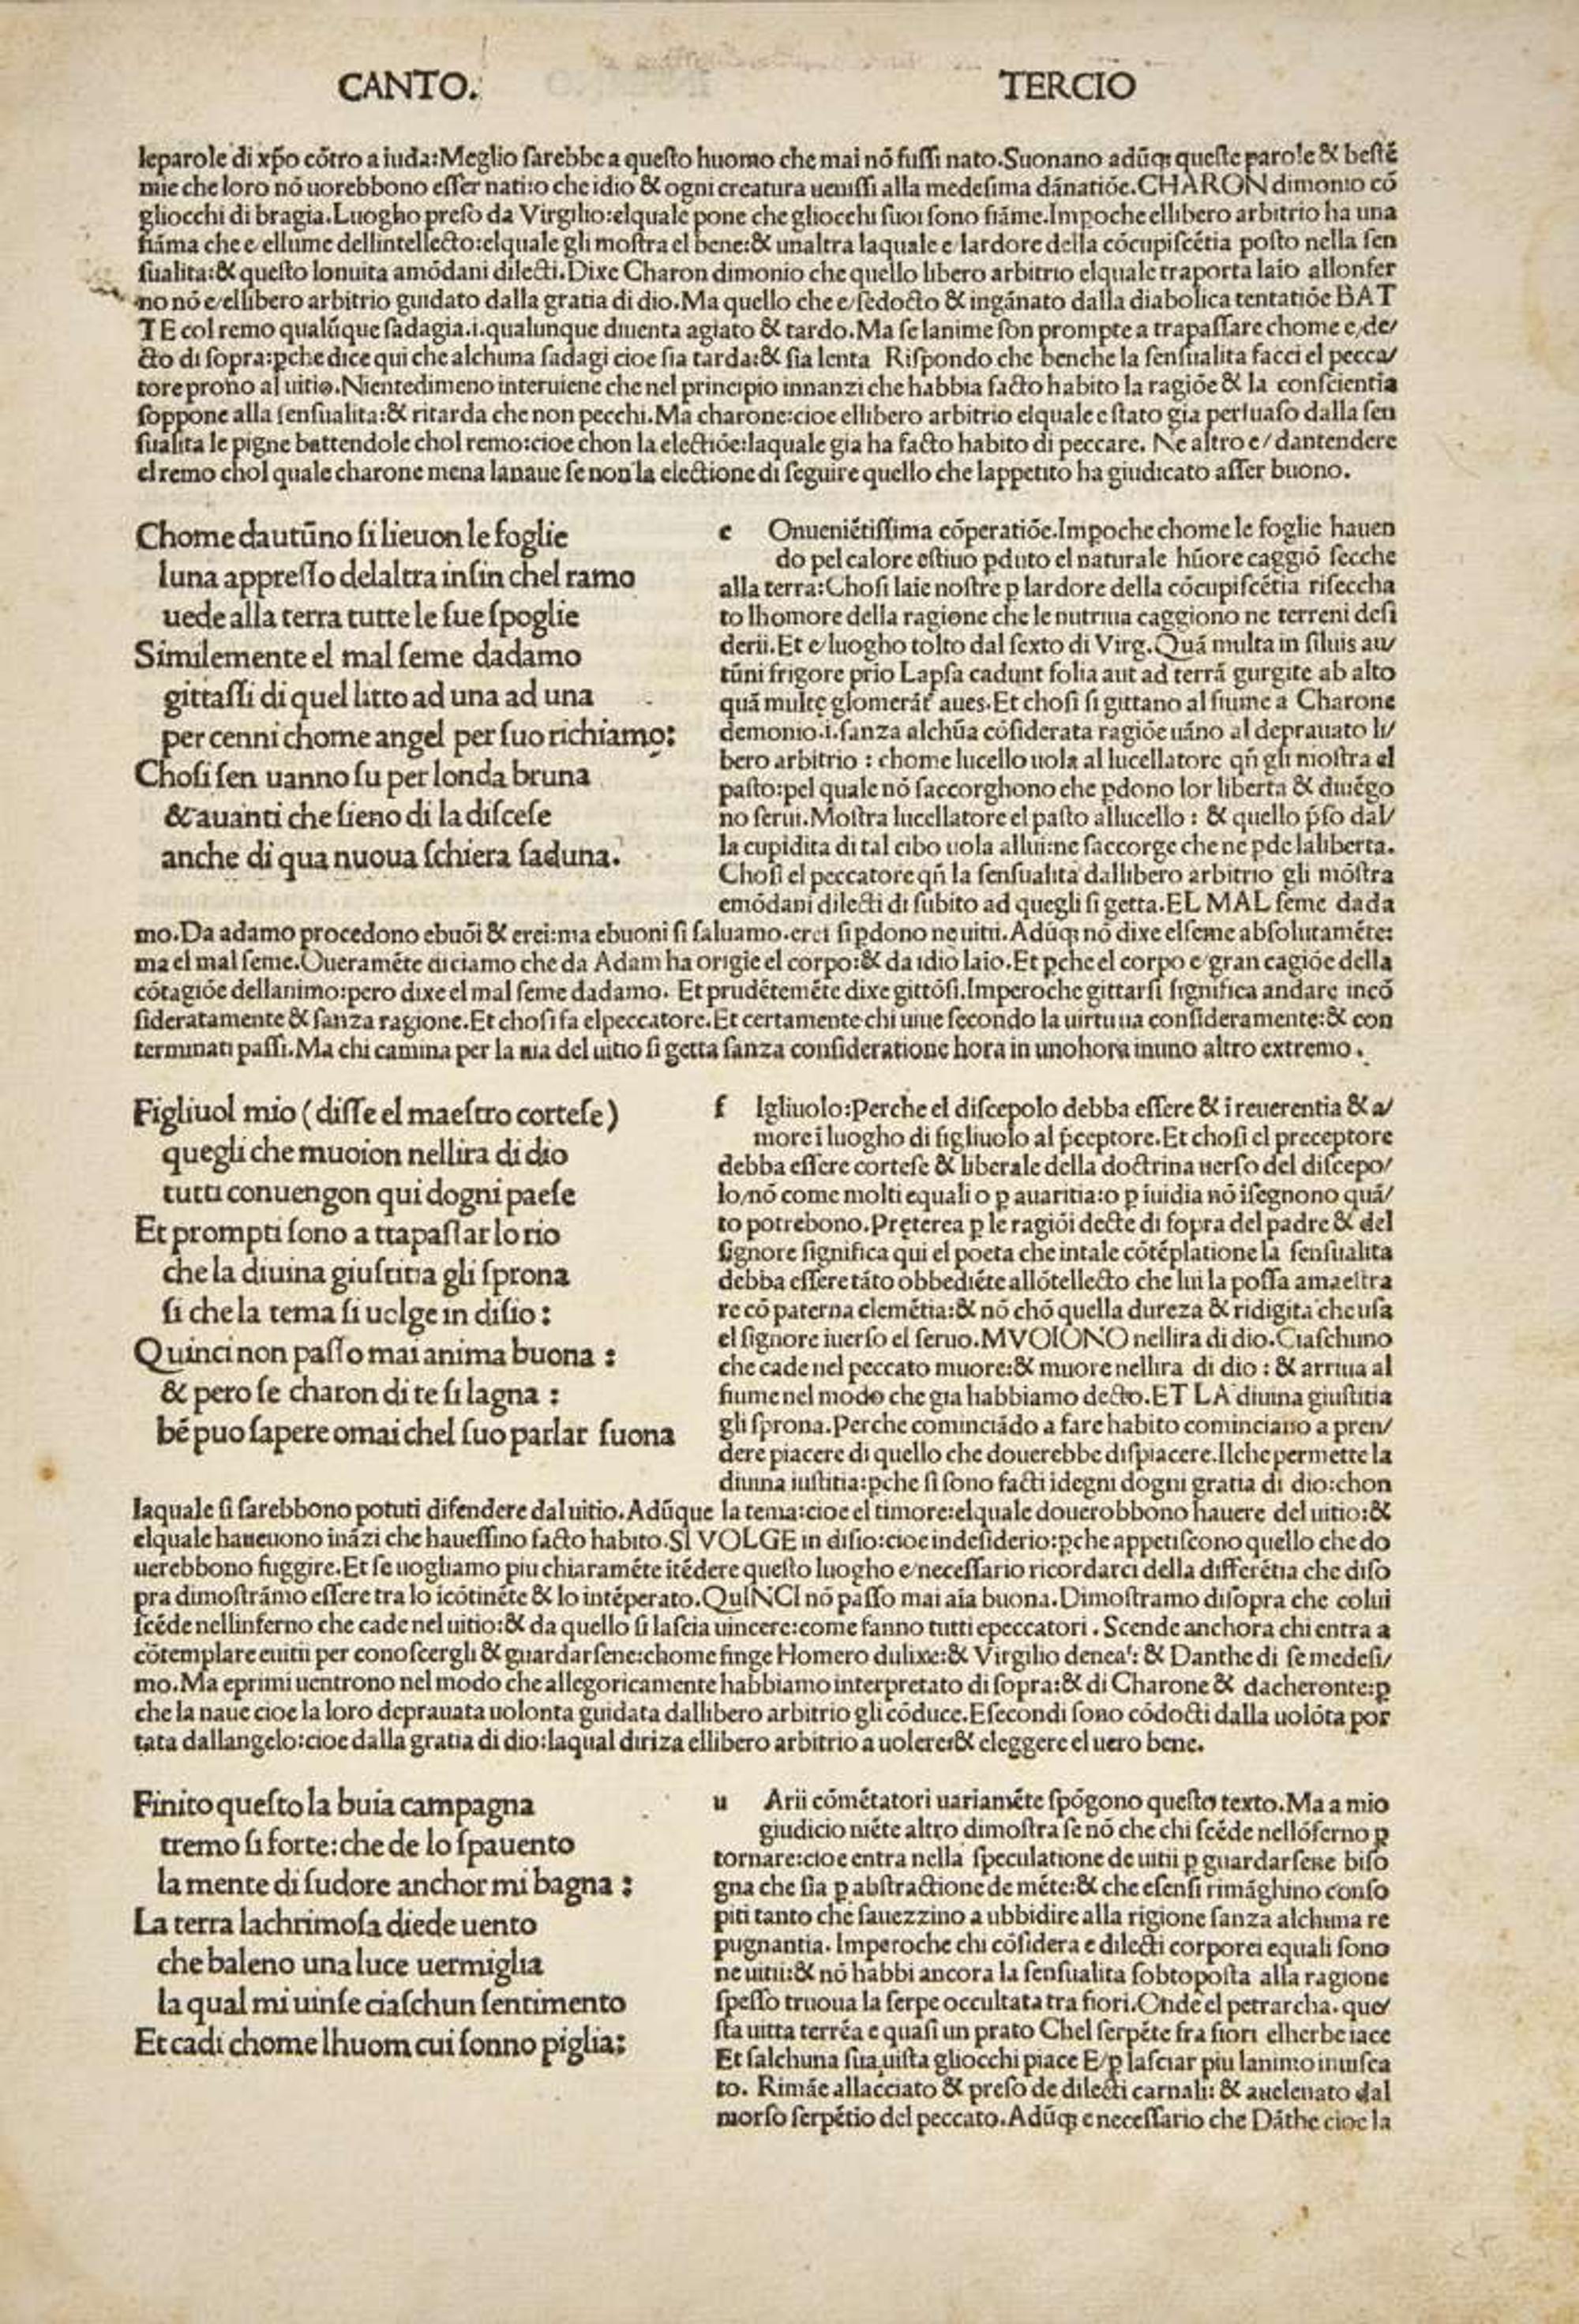 CANTO. TERCIO
leparole di xp̃o cõtro a iuda:Meglio sarebbe a questo huomo che mai nõ fussi nato.Suonano adũqȝ queste parole & bestẽ
mie che loro nõ uorebbono esser nati:o che idio & ogni creatura uenissi alla medesima dãnatiõe.CHARON dimonio cõ
gliocchi di bragia.Luogho preso da Virgilio:elquale pone che gliocchi suoi sono fiãme.Impoche ellibero arbitrio ha una
fiãma che e/ ellume dellintellecto:elquale gli mostra el bene:& unaltra laquale e/ lardore della cõcupiscẽtia posto nella sen
sualita:& questo lonuita amõdani dilecti.Dixe Charon dimonio che quello libero arbitrio elquale traporta laio allonfer
no nõ e/ellibero arbitrio guidato dalla gratia di dio.Ma quello che e/sedocto & ingãnato dalla diabolica tentatiõe BAT
TE col remo qualũque sadagia.i.qualunque diuenta agiato & tardo.Ma se lanime son prompte a trapassare chome e/de/
cto di sopra:ꝑche dice qui che alchuna sadagi cioe sia tarda:& sia lenta Rispondo che benche la sensualita facci el pecca/
tore prono al uitio.Nientedimeno interuiene che nel principio innanzi che habbia facto habito la ragiõe & la conscientia
soppone alla sensualita:& ritarda che non pecchi.Ma charone:cioe ellibero arbitrio elquale e stato gia persuaso dalla sen
sualita le pigne battendole chol remo:cioe chon la electiõe:laquale gia ha facto habito di peccare. Ne altro e/ dantendere
el remo chol quale charone mena lanaue se non la electione di seguire quello che lappetito ha giudicato asser buono.
Chome dautũno si lieuon le foglie
luna appresso delaltra insin chel ramo
uede alla terra tutte le sue spoglie
Similemente el mal seme dadamo
gittassi di quel litto ad una ad una
per cenni chome angel per suo richiamo:
Chosi sen uanno su per londa bruna
& auanti che sieno di la discese
anche di qua nuoua schiera saduna.
c Onueniẽtissima cõperatiõe.Impoche chome le foglie hauen
do pel calore estiuo ꝑduto el naturale hũore caggiõ secche
alla terra:Chosi laie nostre ꝑ lardore della cõcupiscẽtia riseccha
to lhomore della ragione che le nutriua caggiono ne terreni desi
derii.Et e/luogho tolto dal sexto di Virg.Quã multa in siluis au/
tũni frigore prio Lapsa cadunt folia aut ad terrã gurgite ab alto
quã multę glomerãt̃ aues.Et chosi si gittano al fiume a Charone
demonio.i.sanza alchũa cõsiderata ragiõe uãno al deprauato li/
bero arbitrio : chome lucello uola al lucellatore qñ gli mostra el
pasto:pel quale nõ saccorghono che ꝑdono lor liberta & diuẽgo
no serui.Mostra lucellatore el pasto allucello : & quello p̃so dal/
la cupidita di tal cibo uola allui:ne saccorge che ne ꝑde laliberta.
Chosi el peccatore qñ la sensualita dallibero arbitrio gli mõstra
emõdani dilecti di subito ad quegli si getta.EL MAL seme dada
mo.Da adamo procedono ebuõi & erei:ma ebuoni si saluamo.erei si ꝑdono ne uitii.Adũqȝ nõ dixe elseme absolutamẽte:
ma el mal seme.Oueramẽte diciamo che da Adam ha origie el corpo:& da idio laio.Et ꝑche el corpo e/gran cagiõe della
cõtagiõe dellanimo:pero dixe el mal seme dadamo. Et prudẽtemẽte dixe gittõsi.Imperoche gittarsi significa andare incõ
sideratamente & sanza ragione.Et chosi fa elpeccatore.Et certamente chi uiue secondo la uirtu ua consideramente:& con
terminati passi.Ma chi camina per la uia del uitio si getta sanza consideratione hora in unohora inuno altro extremo.
Figliuol mio (disse el maestro cortese)
quegli che muoion nellira di dio
tutti conuengon qui dogni paese
Et prompti sono a ttapassar lo rio
che la diuina giustitia gli sprona
si che la tema si uolge in disio:
Quinci non passo mai anima buona :
& pero se charon di te si lagna :
bẽ puo sapere omai chel suo parlar suona
f Igliuolo:Perche el discepolo debba essere & ĩ reuerentia & a/
more ĩ luogho di figliuolo al p̃ceptore.Et chosi el preceptore
debba essere cortese & liberale della doctrina uerso del discepo/
lo/nõ come molti equali o ꝑ auaritia:o ꝑ ĩuidia nõ ĩsegnono quã/
to potrebono.Pręterea ꝑ le ragiõi decte di sopra del padre & del
signore significa qui el poeta che intale cõtẽplatione la sensualita
debba essere tãto obbediẽte allõtellecto che lui la possa amaestra
re cõ paterna clemẽtia:& nõ chõ quella dureza & ridigita che usa
el signore iuerso el seruo.MVOIONO nellira di dio.Ciaschuno
che cade nel peccato muore:& muore nellira di dio : & arriua al
fiume nel modo che gia habbiamo decto.ET LA diuina giustitia
gli sprona.Perche cominciãdo a fare habito cominciano a pren/
dere piacere di quello che douerebbe dispiacere.Ilche permette la
diuina iustitia:ꝑche si sono facti ĩdegni dogni gratia di dio:chon
laquale si sarebbono potuti difendere dal uitio.Adũque la tema:cioe el timore:elquale douerobbono hauere del uitio:&
elquale haueuono inãzi che hauessino facto habito.SI VOLGE in disio:cioe indesiderio:ꝑche appetiscono quello che do
uerebbono fuggire.Et se uogliamo piu chiaramẽte itẽdere questo luogho e/necessario ricordarci della differẽtia che diso
pra dimostrãmo essere tra lo icõtinẽte & lo intẽperato.QuINCI nõ passo mai aia buona.Dimostramo disopra che colui
scẽde nellinferno che cade nel uitio:& da quello si lascia uincere:come fanno tutti epeccatori . Scende anchora chi entra a
cõtemplare euitii per conoscergli & guardarsene:chome finge Homero dulixe:& Virgilio denea: & Danthe di se medesi/
mo.Ma eprimi uentrono nel modo che allegoricamente habbiamo interpretato di sopra:& di Charone & dacheronte:ꝑ
che la naue cioe la loro deprauata uolonta guidata dallibero arbitrio gli cõduce.Esecondi sono cõdocti dalla uolõta por
tata dallangelo:cioe dalla gratia di dio:laqual diriza ellibero arbitrio a uolere:& eleggere el uero bene.
Finito questo la buia campagna
tremo si forte:che de lo spauento
la mente di sudore anchor mi bagna :
La terra lachrimosa diede uento
che baleno una luce uermiglia
la qual mi uinse ciaschun sentimento
Et cadi chome lhuom cui sonno piglia:
u Arii cõmẽtatori uariamẽte spõgono questo texto.Ma a mio
giudicio niẽte altro dimostra se nõ che chi scẽde nellõferno ꝑ
tornare:cioe entra nella speculatione de uitii ꝑ guardarsene biso
gna che sia ꝑ abstractione de mẽte:& che esensi rimãghino conso
piti tanto che sauezzino a ubbidire alla rigione sanza alchuna re
pugnantia. Imperoche chi cõsidera e dilecti corporei equali sono
ne uitii:& nõ habbi ancora la sensualita sobtoposta alla ragione
spesso truoua la serpe occultata tra fiori.Onde el petrarcha. que/
sta uitta terrẽa e quasi un prato Chel serpẽte fra fiori elherbe iace
Et salchuna sua uista gliocchi piace E/ꝑ lasciar piu lanimo inuisca
to. Rimãe allacciato & preso de dilecti carnali: & auelenato dal
morso serpẽtio del peccato.Adũqȝ e necessario che Dãthe cioe la